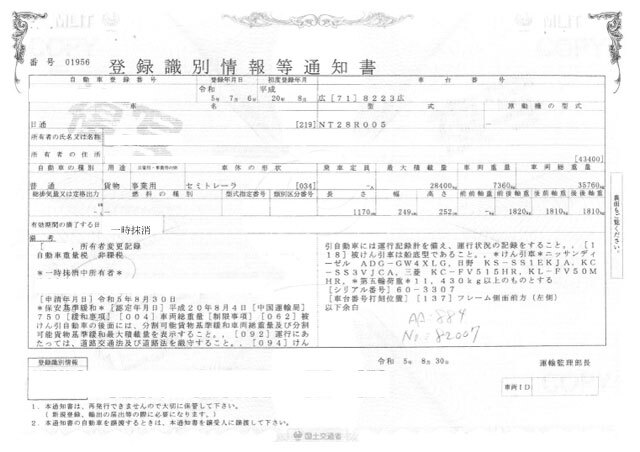 番号 01956 登録識別情報等通知書
自動車登録番号 登録年月日 初度登録年月 車台番号
令和 平成
5年 7月 6日 20年 8月 広[71]8223広
車名 型式 原動機の型式
日通 [219] NT28R005
所有者の氏名又は名称
所有者の住所
[43400]
自動車の種別 用途 自家用・事業用の別 車体の形状 乗車定員 最大積載量 車両重量 車両総重量
普通 貨物 事業用 セミトレーラ [034] -人 28400㎏ 7360㎏ 35760㎏
総排気量又は定格出力 燃料の種類 型式指定番号 類別区分番号 長さ 幅 高さ 前前軸重 前後軸重 後前軸重 後後軸重
1170㎝ 249㎝ 252㎝ -㎏ 1820㎏ 1810㎏ 1810㎏
有効期間の満了する日 一時抹消
備考
[ 、所有者変更記録
自動車重量税 非課税
*一時抹消中所有者*
[申請年月日]令和5年8月30日
*保安基準緩和*[認定年月日]平成20年8月4日[中国運輸局]
750[緩和事項][004]車両総重量[制限事項][062]被
けん引自動車の後面には、分割可能貨物基準緩和車両総重量及び分割
可能貨物基準緩和最大積載量を表示すること。、[092]運行にあ
たっては、道路交通法及び道路法を厳守すること。、[094]けん
引自動車には運行記録計を備え、運行状況の記録をすること。、[1
18]被けん引車は船底型であること。、*けん引車*ニッサンディ
ーゼル ADG-GW4XLG、日野 KS-SS1EKJA、KC-
SS3VJCA、三菱 KC-FV515HR、KL-FV50M
HR、*第五輪荷重*11,430kg以上のものとする
[シリアル番号]60-3307
[車台番号打刻位置][137]フレーム側面前方(左側)
以下余白
No: 82007
裏面もご覧ください。
登録識別情報
令和 5年 8月30日 運輸監理部長
車両ID
1.本通知書は、再発行できませんので大切に保管して下さい。
(新規登録、輸出の届出等の際に必要になります。)
2.本通知書の自動車を譲渡するときは、本通知書を譲受人に譲渡して下さい。
国土交通省